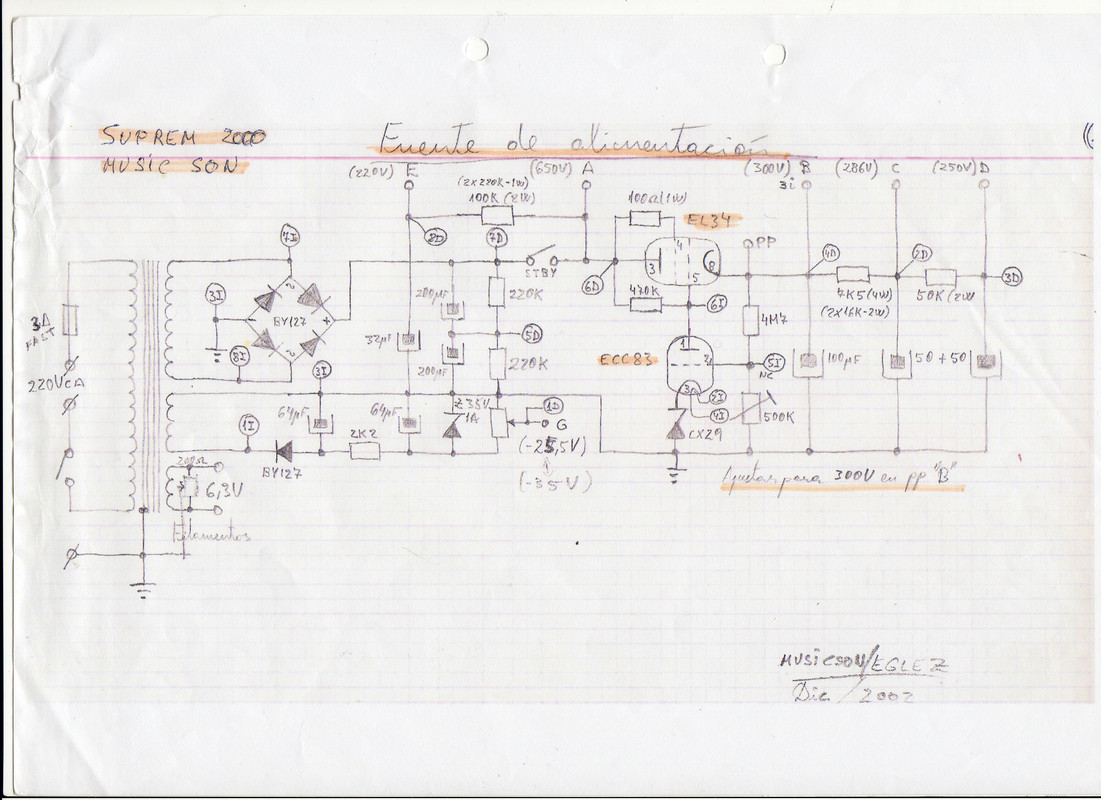 SUPREM 2000
MUSIC SON
Fuente de alimentación
(220V) E
(650V) A
(300V) B
3i
(286V) C
(250V) D
(2x220K-1W)
100K (2W)
100Ω(1W)
EL34
2D
7D
STBY
6D
4
3
8
5
PP
4D
2D
3D
7K5(4W)
(2x16K-2W)
50K (2W
7I
3I
BY127
8I
3I
200µF
220K
5D
32µF
200µF
220K
470K
6I
4M7
ECC83
1
2
3
5I
NC
2I
4I
500K
CX29
100µF
50 + 50
3A
FAST
220V CA
1I
64µF
64µF
Z 35V
1A
1D
G
(-25,5V)
(-35V)
BY127
2K2
200Ω
6,3V
Filamentos
Ajustar para 300V en pp "B"
MUSICSON/EGLEZ
Dic / 2002